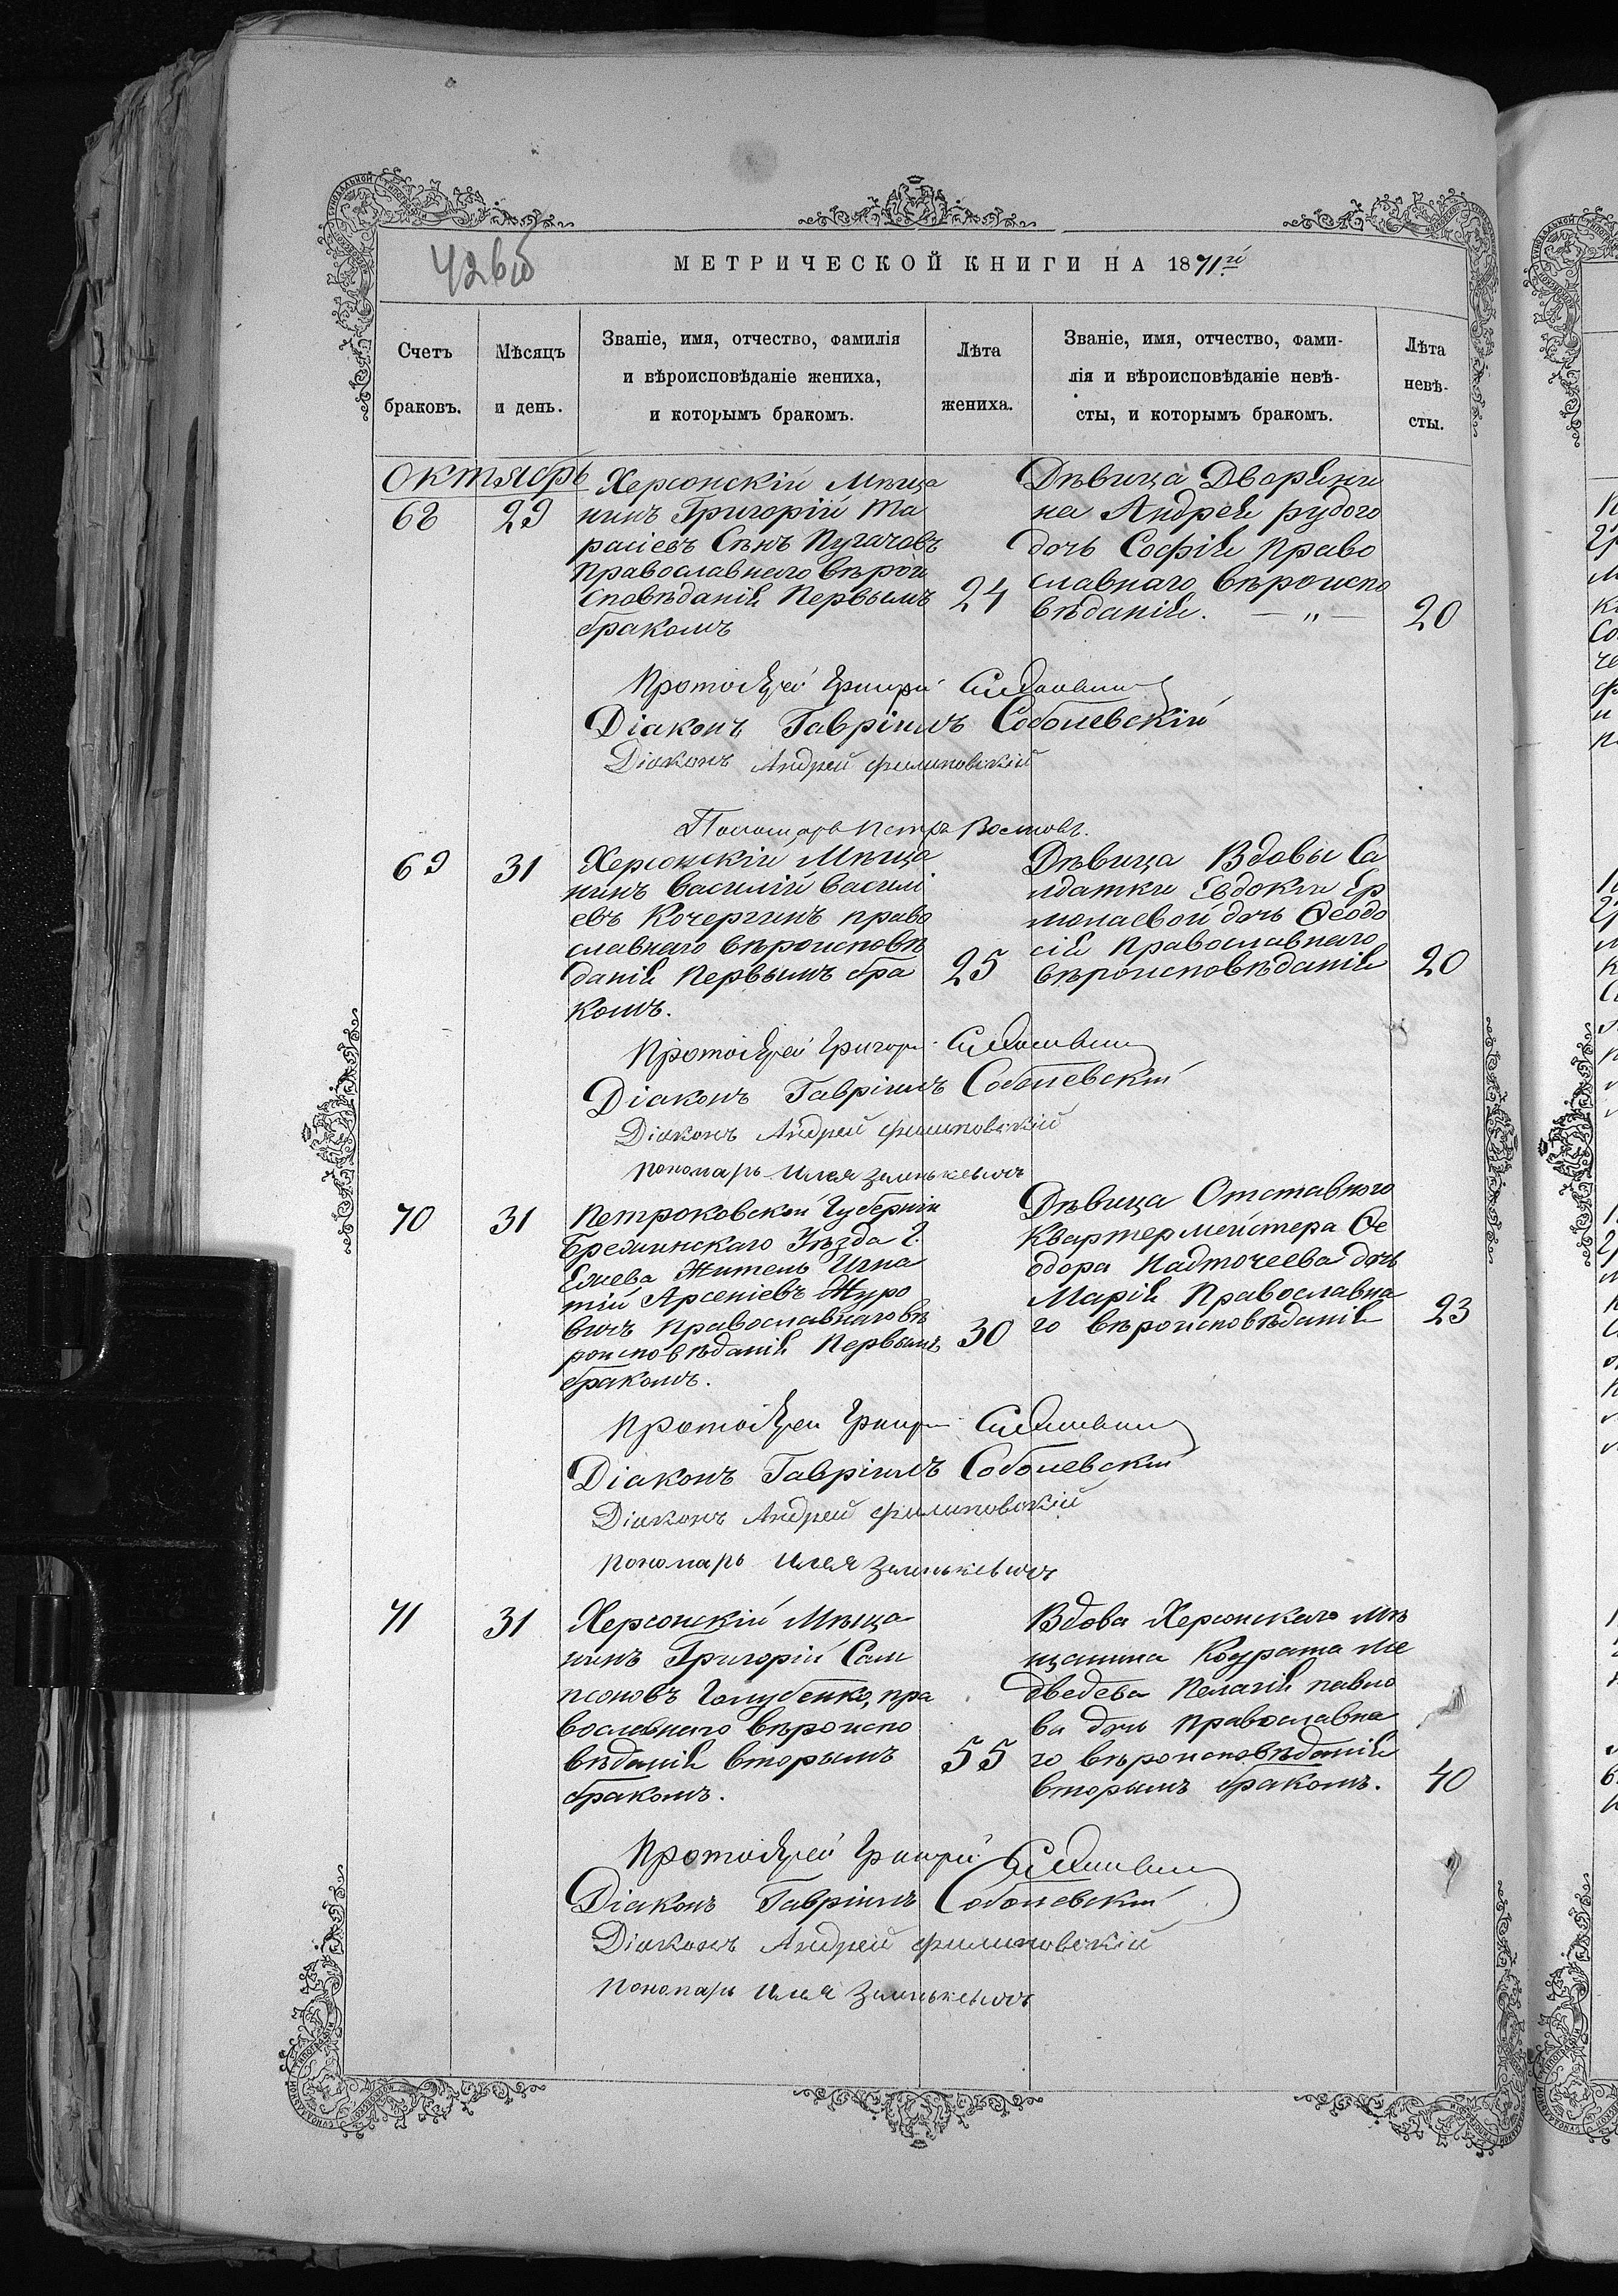 426 об
МЕТРИЧЕСКОЙ КНИГИ НА 1871й
Счетъ
браковъ.
Мѣсяцъ
и день.
Званіе, имя, отчество, фамилія
и вѣроисповѣданіе жениха,
и которымъ бракомъ.
Лѣта
жениха.
Званіе, имя, отчество, фами-
лія и вѣроисповѣданіе невѣ-
сты, и которымъ бракомъ.
Лѣта
невѣ-
сты.
Октябрь
68
29
Херсонскій Мѣща
нинъ Григорій Та
расіевъ Сынъ Пугачовъ
православнаго вѣрои
сповѣданія Первымъ
бракомъ
24
Дѣвица Дворяни
на Андрея рудого
дочь Софія Право
славнаго вѣроиспо
вѣданія. — „ —
20
Протоіерей Григорій
Діаконъ Гавріилъ Соболевскій
Діаконъ Андрей Филиповскій
Пономарь Петръ
69
31
Херсонскій Мѣща
нинъ Василій Васили
евъ Кочергинъ право
славнаго вѣроисповѣ
данія Первымъ бра
комъ.
25
Дѣвица Вдовы Са
лдатки Евдокии Ер
молаевой дочь Ѳеодо
сія Православнаго
вѣроисповѣданія
20
Протоіерей Григорій
Діаконъ Гавріилъ Соболевскій
Діаконъ Андрей Филиповскій
пономарь Илья Зинькевичъ
70
31
Петроковской Губерніи
Брезинскаго Уѣзда Г.
Ежева Житель Игна
тій Арсеніевъ Журо
вичъ Православнаго вѣ
роисповѣданія Первымъ
бракомъ.
30
Дѣвица Отставного
Квартермейстера Ѳе
одора Надточеева дочь
Марія Православна
го вѣроисповѣданія
23
Протоіерей Григорій
Діаконъ Гавріилъ Соболевскій
Діаконъ Андрей Филиповскій
пономарь Илья Зинькевичъ
71
31
Херсонскій Мѣща
нинъ Григорій Сам
псоновъ Голубенко, пра
вославнаго вѣроиспо
вѣданія вторымъ
бракомъ.
55
Вдова Херсонскаго Мѣ
щанина Кодрата Ме
дведева Пелагія павло
ва дочь Православна
го вѣроисповѣданія
вторымъ бракомъ.
40
Протоіерей Григорій
Діаконъ Гавріилъ Соболевскій
Діаконъ Андрей Филиповскій
пономарь Илья Зинькевичъ